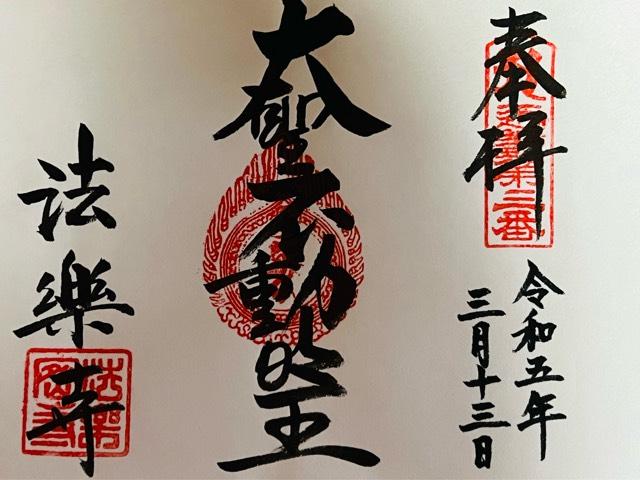 奉拝
令和五年
三月十三日
大聖不動明王
法樂寺